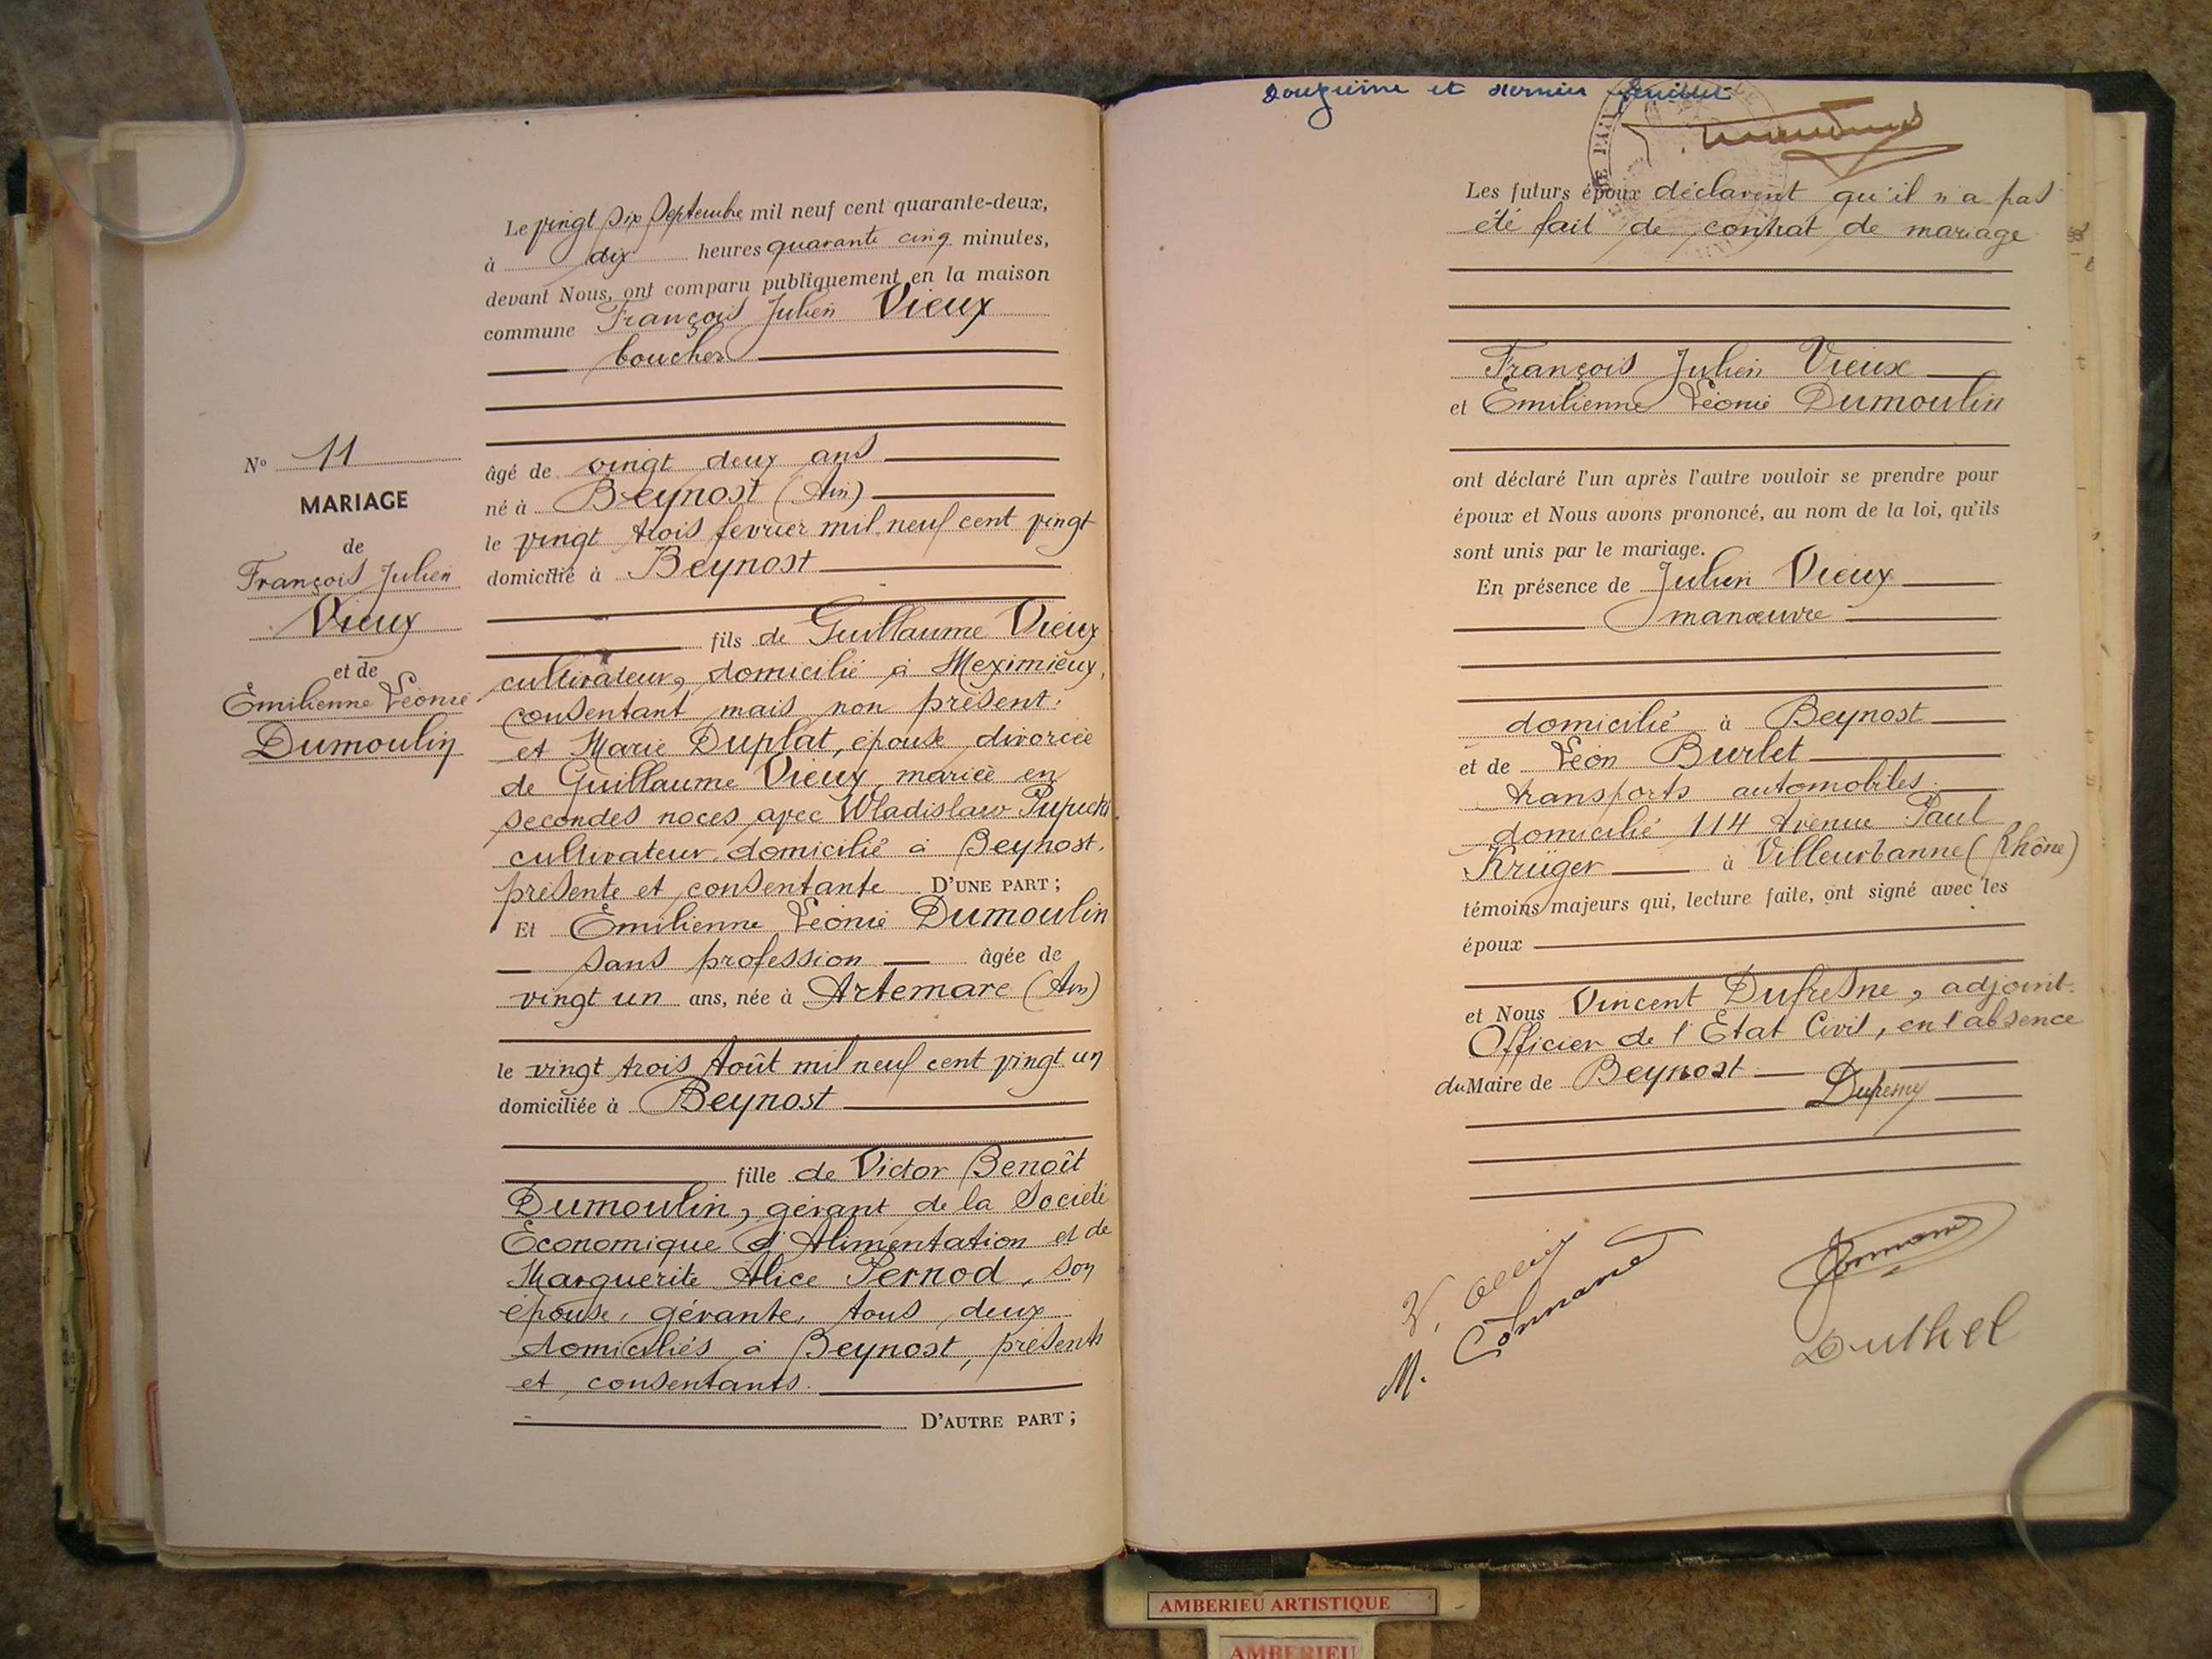 Le vingt six Septembre mil neuf cent quarante-deux,
à dix heures quarante cinq minutes,
devant Nous, ont comparu publiquement en la maison
commune François Julien Vieux
boucher
âgé de vingt deux ans
né à Beynost (Ain)
le vingt trois février mil neuf cent vingt
domicilié à Beynost
fils de Guillaume Vieux
cultivateur, domicilié à Meximieux,
consentant mais non présent.
et Marie Duplat, épouse divorcée
de Guillaume Vieux, mariée en
secondes noces avec Wladislaw
cultivateur domicilié à Beynost.
présente et consentante D'UNE PART ;
Et Emilienne Léonie Dumoulin
sans profession âgée de
vingt un ans, née à Artemare (Ain)
le vingt trois Août mil neuf cent vingt un
domiciliée à Beynost
fille de Victor Benoît
Dumoulin, gérant de la Société
Economique d'Alimentation et de
Marguerite Alice Pernod, son
épouse, gérante, tous deux
domiciliés à Beynost, présents
et consentants.
D'AUTRE PART ;
N° 11
MARIAGE
de
François Julien
Vieux
et de
Emilienne Léonie
Dumoulin
Douzième et dernier feuillet
Les futurs époux déclarent qu'il n'a pas
été fait de contrat de mariage
François Julien Vieux
et Emilienne Léonie Dumoulin
ont déclaré l'un après l'autre vouloir se prendre pour
époux et Nous avons prononcé, au nom de la loi, qu'ils
sont unis par le mariage.
En présence de Julien Vieux
manœuvre
domicilié à Beynost
et de Léon Burlet
transports automobiles
domicilié 114 Avenue Paul
Krüger à Villeurbanne (Rhône)
témoins majeurs qui, lecture faite, ont signé avec les
époux
et Nous Vincent Dufresne, adjoint
Officier de l'Etat Civil, en l'absence
du Maire de Beynost
M. Commane
Duthel
AMBERIEU ARTISTIQUE
AMBERIEU